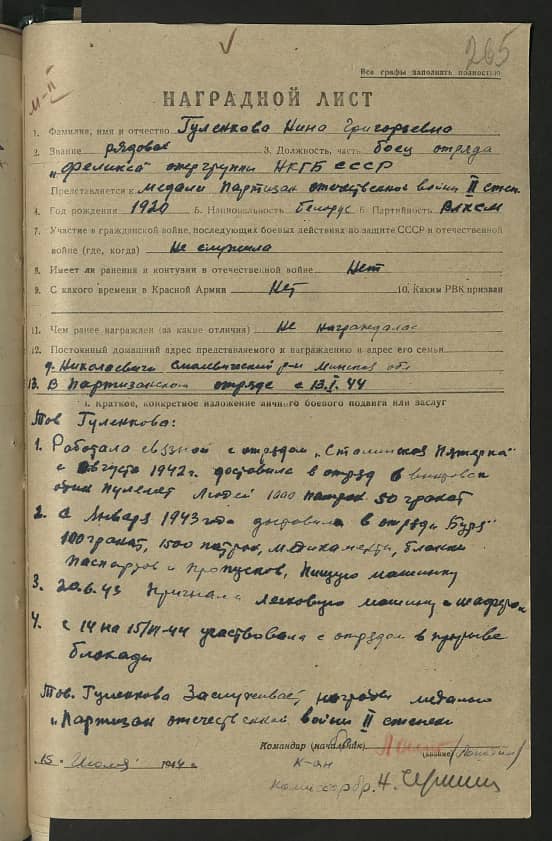 265
м-II
Все графы заполнять полностью
НАГРАДНОЙ ЛИСТ
1. Фамилия, имя и отчество Гуленкова Нина Григорьевна
2. Звание рядовая 3. Должность, часть боец отряда
"Феликса" опергруппы НКГБ СССР
Представляется к медали Партизан отечественной войны II степ.
4. Год рождения 1920 5. Национальность белорус 6. Партийность ВЛКСМ
7. Участие в гражданской войне, последующих боевых действиях по защите СССР и отечественной
войне (где, когда) Не служила
8. Имеет ли ранения и контузии в отечественной войне Нет
9. С какого времени в Красной Армии Нет 10. Каким РВК призван
11. Чем ранее награжден (за какие отличия) Не награждалась
12. Постоянный домашний адрес представляемого к награждению и адрес его семьи
д. Николаевичи Смолевичский р-н Минская обл
13. В Партизанском отряде с 13.I.44
1. Краткое, конкретное изложение личного боевого подвига или заслуг
Тов Гуленкова:
1. Работала связной с отрядом "Сталинская Пятёрка"
с августа 1942 г. доставила в отряд 6 винтовок
один пулемет людей 1000 патрон 50 гранат
2. с Января 1943 года доставила в отряд "Буря"
100 гранат, 1500 патрон, медикаменты, бланки
паспортов и пропусков, пишущую машинку
3. 20.6.43 пригнала легковую машину с шофером
4. с 14 на 15/VI-44 участвовала с отрядом в прорыве
блокады
Тов. Гуленкова Заслуживает награды медалью
"Партизан отечественной войны II степени
Командир (начальник)
(звание)
15. Июля 1944 г.
к-ан
комиссар бр. Н.